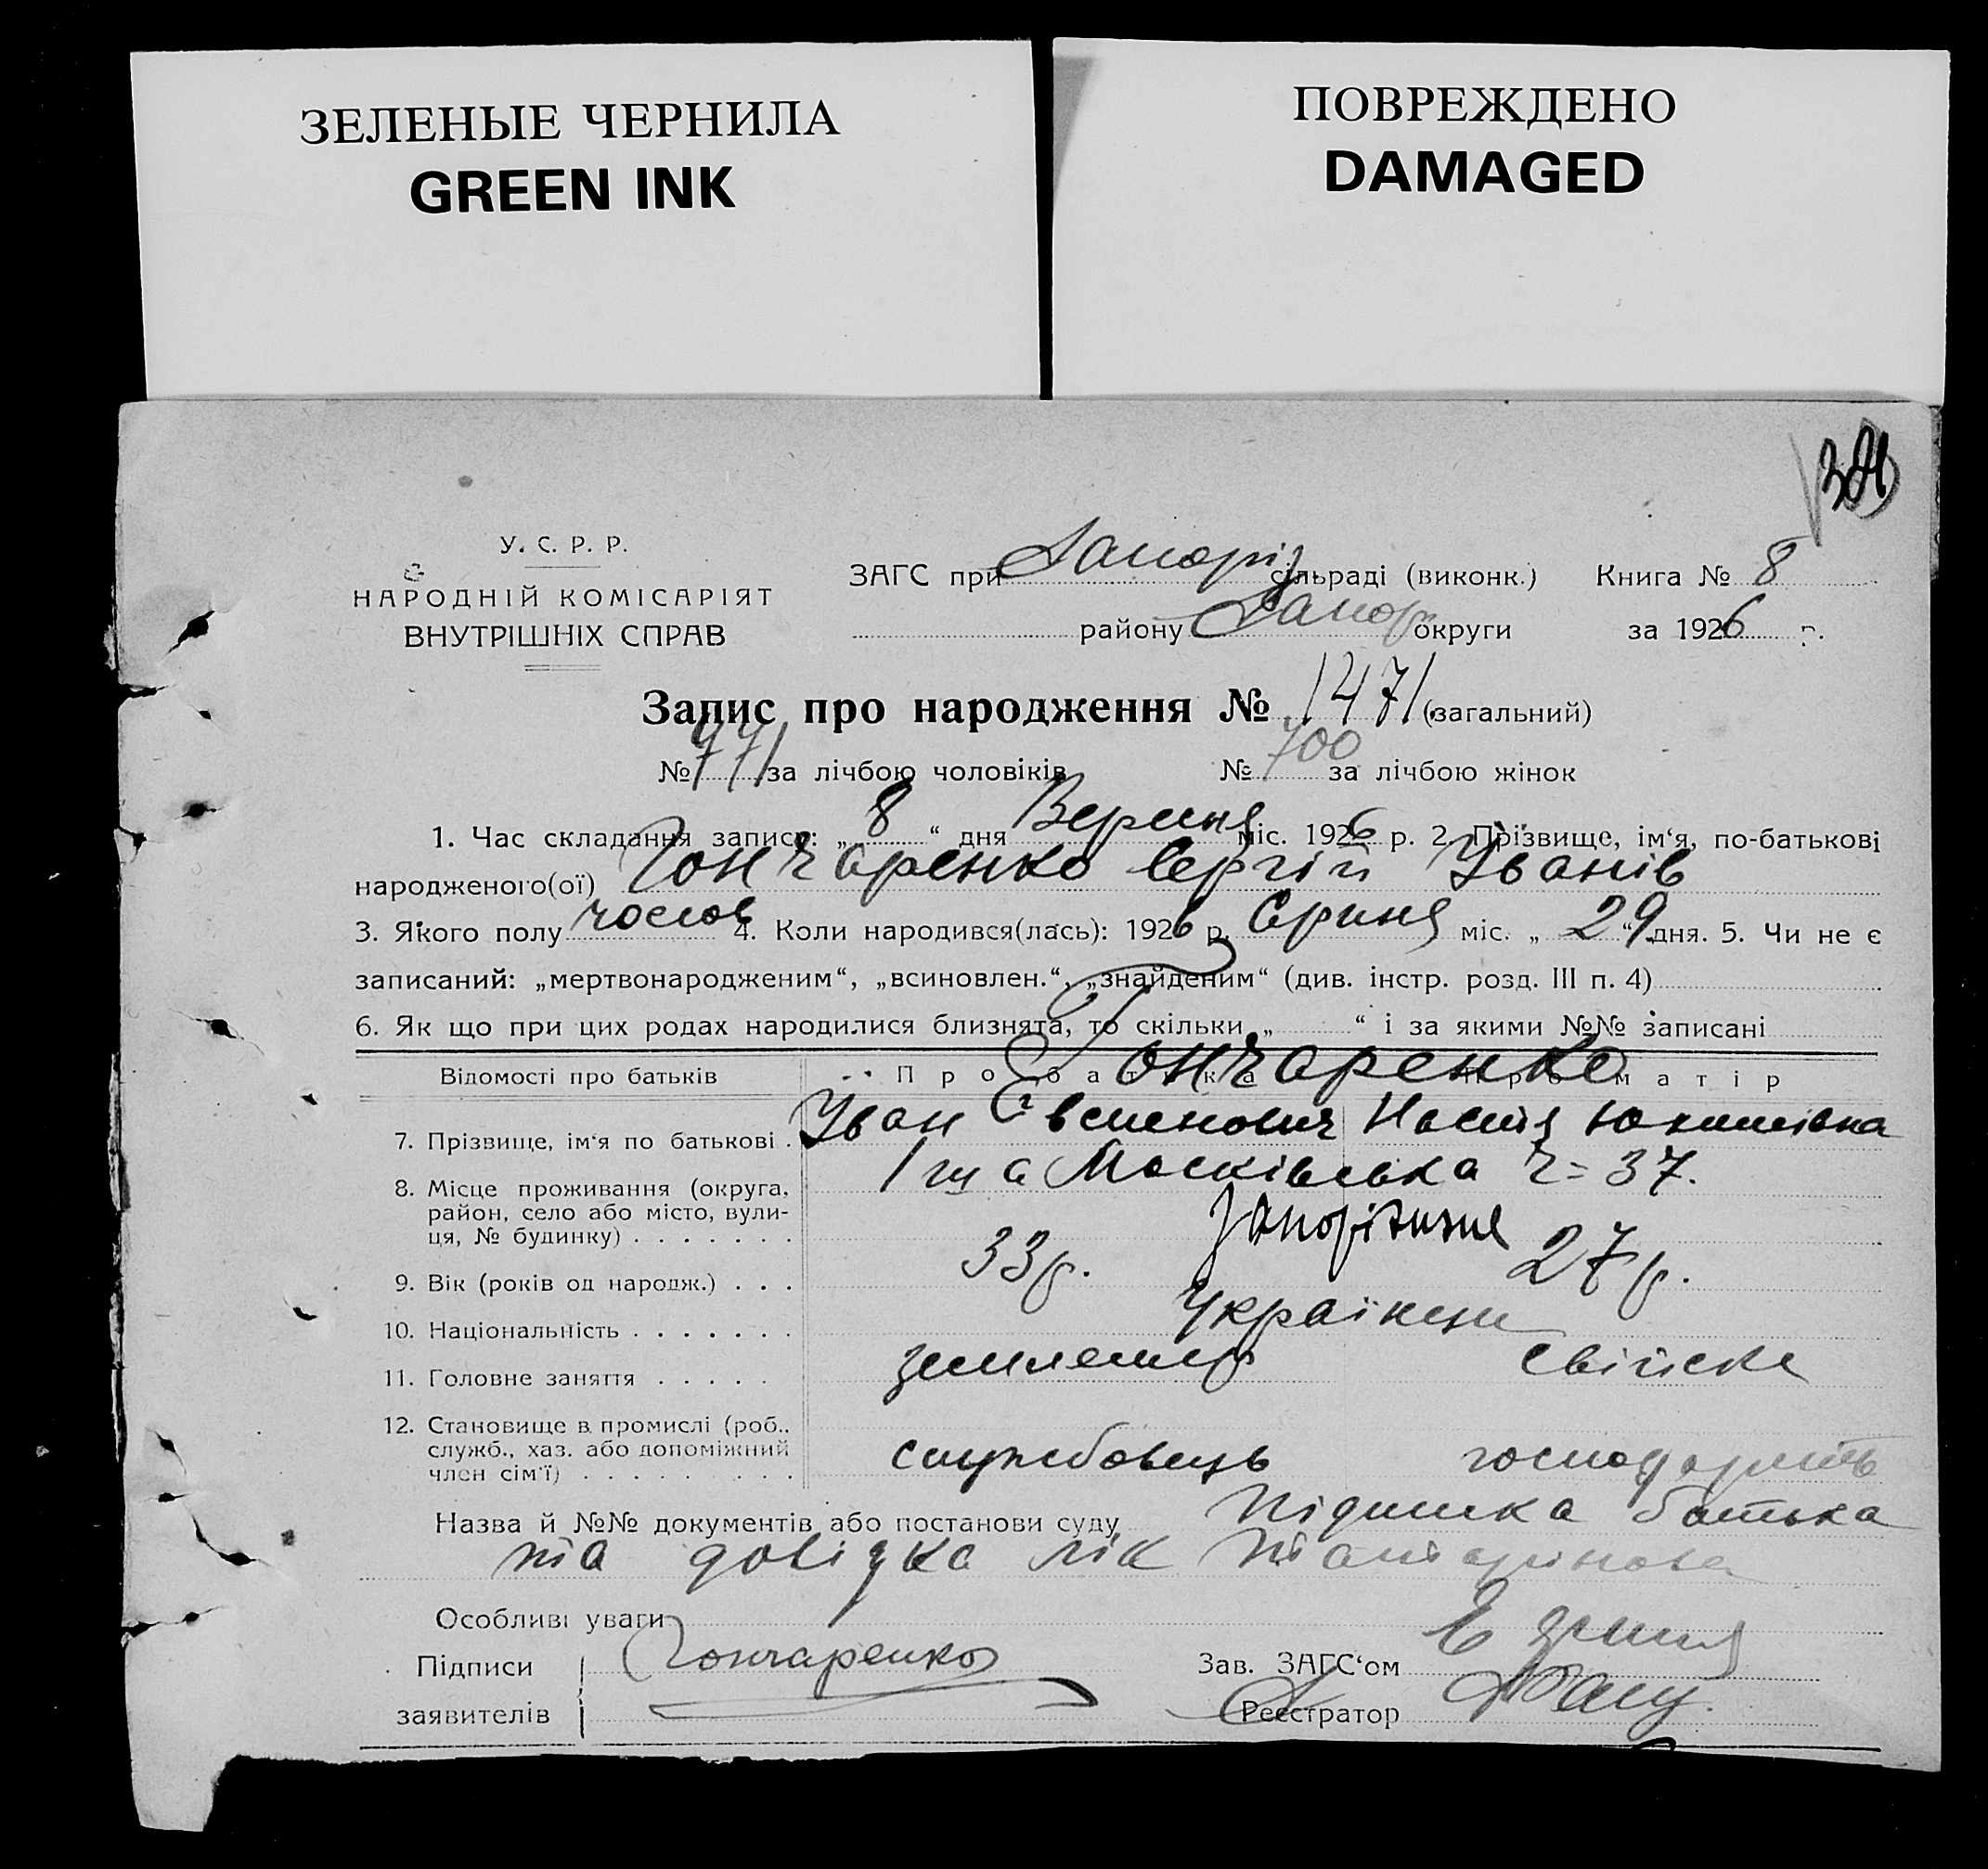 ЗЕЛЕНЫЕ ЧЕРНИЛА
GREEN INK
ПОВРЕЖДЕНО
DAMAGED
У. С. Р. Р.
НАРОДНІЙ КОМІСАРІЯТ
ВНУТРІШНІХ СПРАВ
ЗАГС при Запоріз сільраді (виконк.) Книга № 8
району Запор округи за 1926 р.
Запис про народження № 1471 (загальний)
№ 771 за лічбою чоловіків № 700 за лічбою жінок
1. Час складання запису: „ 8 “ дня Вересня міс. 1926 р. 2. Прізвище, ім‘я, по-батькові
народженого(ої) Гончаренко Сергій Іванів
3. Якого полу чолов 4. Коли народився(лась): 1926 р. Серпня міс. „ 29 “ дня. 5. Чи не є
записаний: „мертвонародженим“, „всиновлен.“, „знайденим“ (див. інстр. розд. III п. 4)
6. Як що при цих родах народилися близнята, то скільки „ “ і за якими №№ записані
Відомості про батьків Про батька Про матір
Гончаренко
7. Прізвище, ім‘я по батькові . Іван Євсеенович Настя Юхимівна
8. Місце проживання (округа, Московська ч= 37.
район, село або місто, вули-
ця, № будинку) . . . . . . . Запоріжжя
9. Вік (років од народж.) . . . 33 р. 27 р.
10. Національність . . . . . . . Українці
11. Головне заняття . . . . . землемір
12. Становище в промислі (роб.,
служб., хаз. або допоміжний
член сім‘ї) . . . . . . . . . службовець
Назва й №№ документів або постанови суду Підписка батька
та довідка лік
Особливі уваги
Підписи Гончаренко Зав. ЗАГС‘ом
заявителів Реєстратор